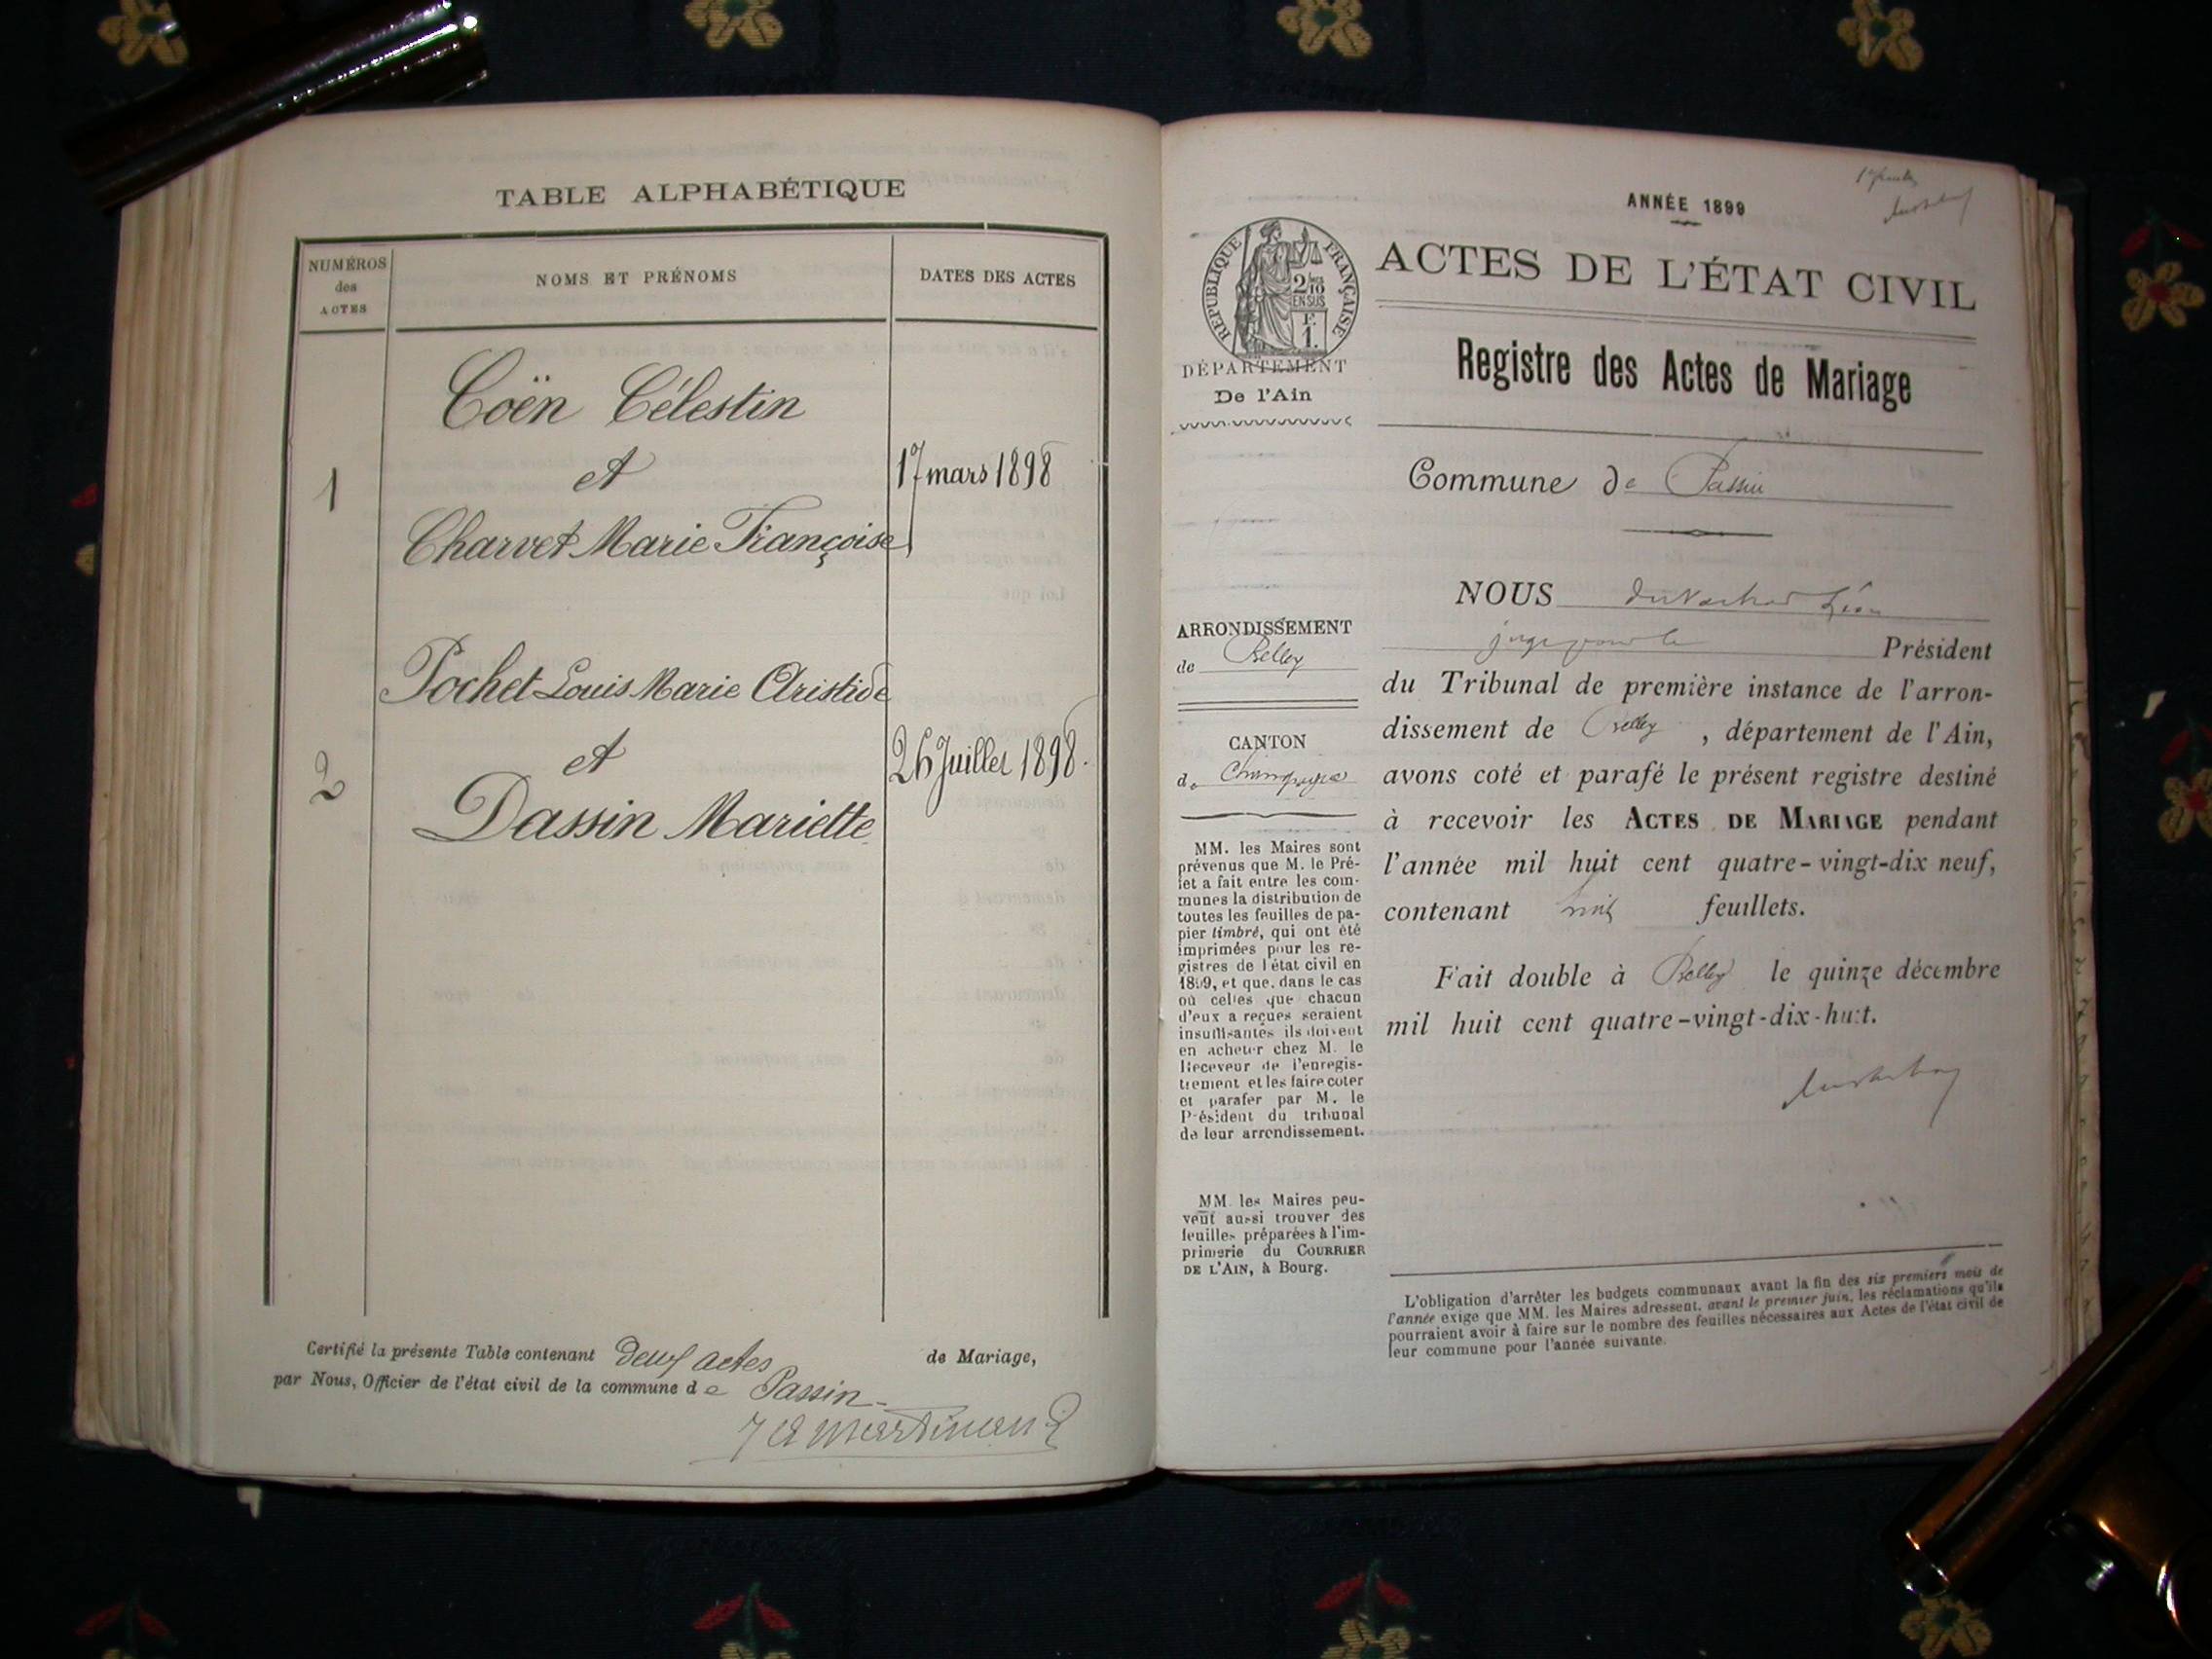 TABLE ALPHABÉTIQUE
NUMÉROS des ACTES
NOMS ET PRÉNOMS
DATES DES ACTES
Coën Célestin
1
et
17 mars 1898
Charvet Marie Françoise
Pochet Louis Marie Aristide
2
et
26 Juillet 1898.
Dassin Mariette
Certifié la présente Table contenant deux actes de Mariage,
par Nous, Officier de l'état civil de la commune de Passin
ANNÉE 1899
RÉPUBLIQUE FRANÇAISE
2/10
EN SUS
F.
1.
ACTES DE L'ÉTAT CIVIL
DÉPARTEMENT
De l'Ain
Registre des Actes de Mariage
Commune de Passin
ARRONDISSEMENT
de Belley
CANTON
de
MM. les Maires sont
prévenus que M. le Pré-
fet a fait entre les com-
munes la distribution de
toutes les feuilles de pa-
pier timbré, qui ont été
imprimées pour les re-
gistres de l'état civil en
1899, et que, dans le cas
où celles que chacun
d'eux a reçues seraient
insuffisantes ils doivent
en acheter chez M. le
Receveur de l'enregis-
trement et les faire coter
et parafer par M. le
Président du tribunal
de leur arrondissement.
MM. les Maires peu-
vent aussi trouver des
feuilles préparées à l'im-
primerie du COURRIER
DE L'AIN, à Bourg.
NOUS Léon
juge pour le Président
du Tribunal de première instance de l'arron-
dissement de Belley, département de l'Ain,
avons coté et parafé le présent registre destiné
à recevoir les ACTES DE MARIAGE pendant
l'année mil huit cent quatre-vingt-dix neuf,
contenant feuillets.
Fait double à Belley le quinze décembre
mil huit cent quatre-vingt-dix-huit.
L'obligation d'arrêter les budgets communaux avant la fin des six premiers mois de
l'année exige que MM. les Maires adressent, avant le premier juin, les réclamations qu'ils
pourraient avoir à faire sur le nombre des feuilles nécessaires aux Actes de l'état civil de
leur commune pour l'année suivante.